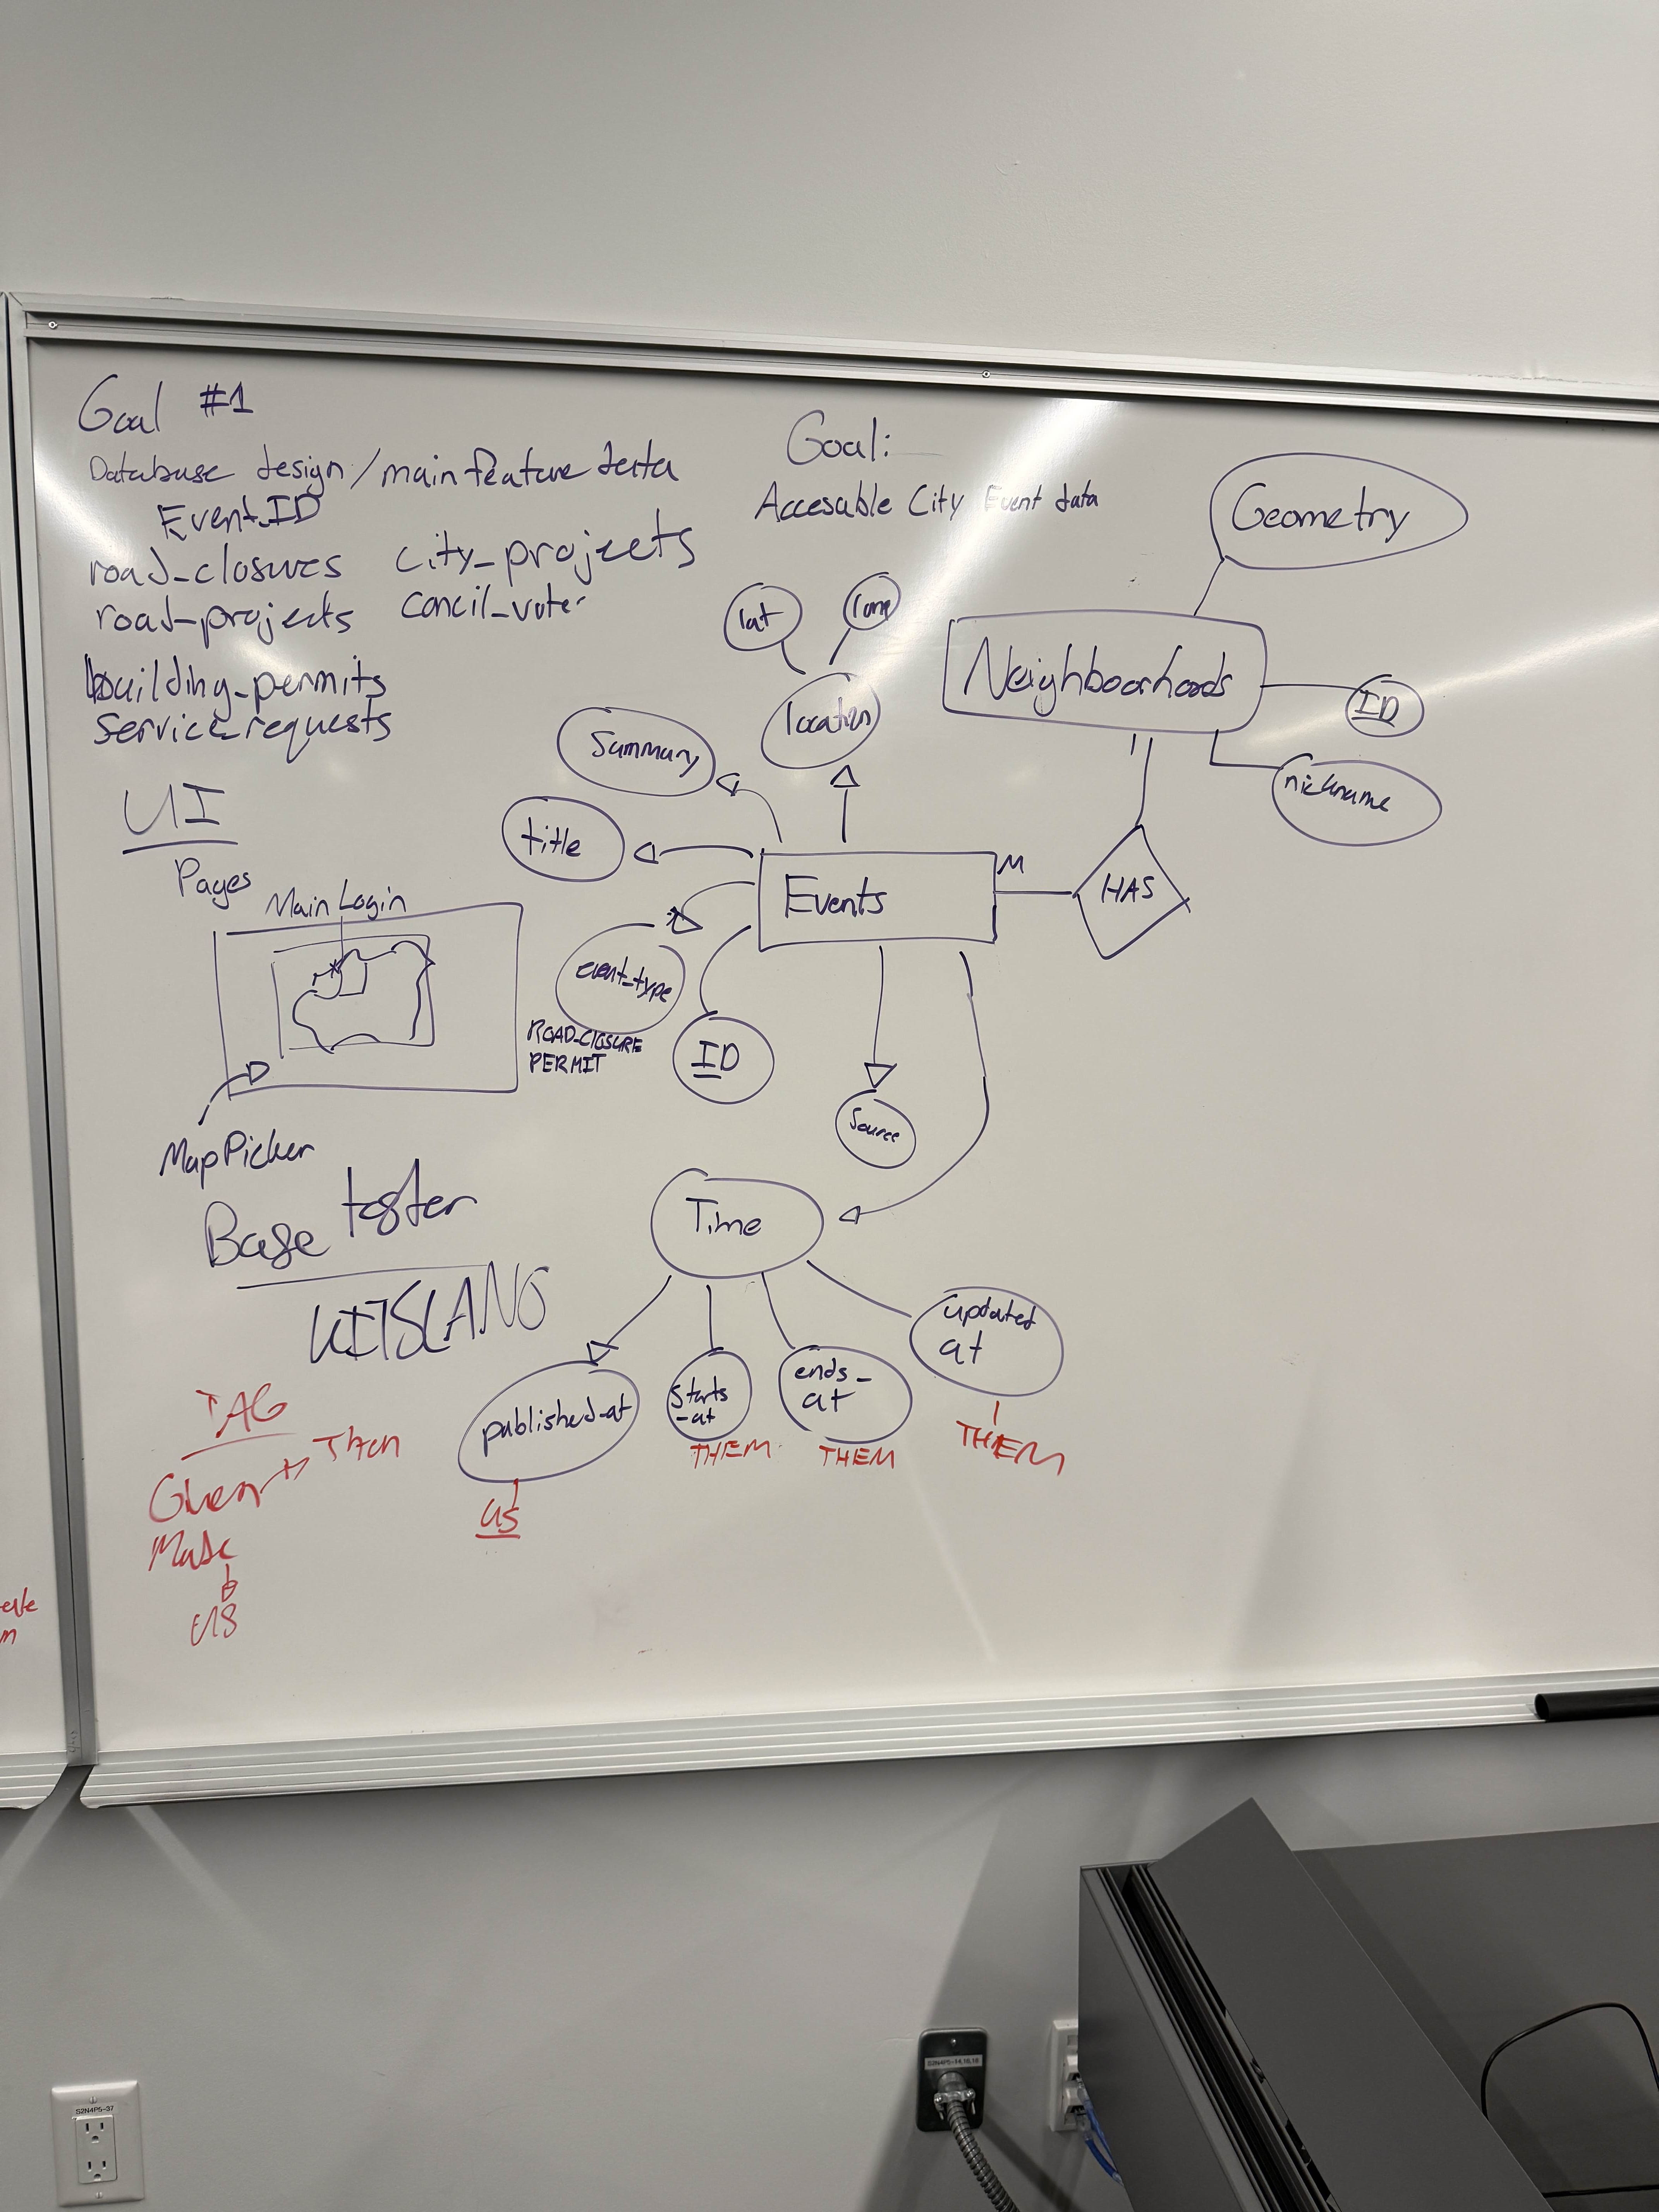 Goal #1
Database design/main feature data
Event_ID
road_closures city_projects
road_projects concil_votes
building_permits
service_requests
UI
Pages
Main Login
MapPicker
Base tester
TAG
Given Then
Made
US
Goal:
Accesable City Event data
Geometry
Neighboorhoods
ID
nickname
HAS
M
Events
lat
long
location
Summary
title
event_type
ROAD_CLOSURE
PERMIT
ID
Source
Time
published_at
US
starts
-at
THEM
ends_
at
THEM
updated
at
THEM
S2N4P5-37
S2N4P5-14,16,18